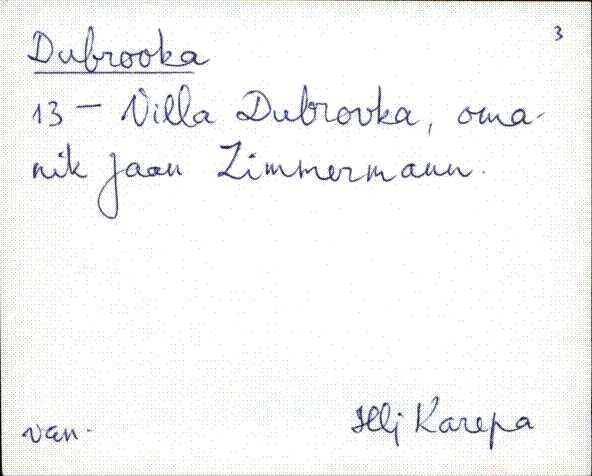 3
Dubrovka
13 – Villa Dubrovka, oma-
nik Jaan Zimmermann.
van. Illj Karepa